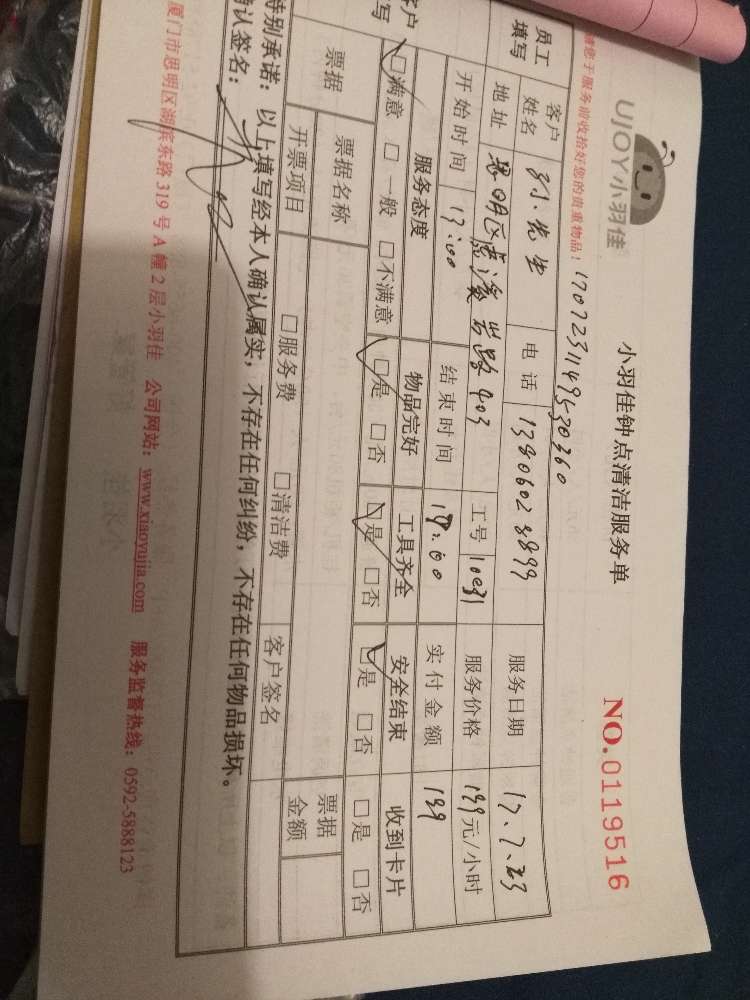 UJOY小羽佳
小羽佳钟点清洁服务单
NO.0119516
请您于服务前收拾好您的贵重物品！
员工填写 客户姓名 孙先生 电话 服务日期 17.7.23
地址 思明区 403 工号 10031 服务价格 199元/小时
开始时间 17:00 结束时间 实付金额 199
客户 写 服务态度 物品完好 工具齐全 安全结束 收到卡片
☑满意 □一般 □不满意 ☑是 □否 ☑是 □否 ☑是 □否 □是 □否
票据 票据名称 客户签名 票据金额
开票项目 □服务费 □清洁费
特别承诺：以上填写经本人确认属实，不存在任何纠纷，不存在任何物品损坏。
确认签名：
厦门市思明区湖滨东路 319 号 A 幢 2 层小羽佳 公司网站：www.xiaoyujia.com 服务监督热线：0592-5888123